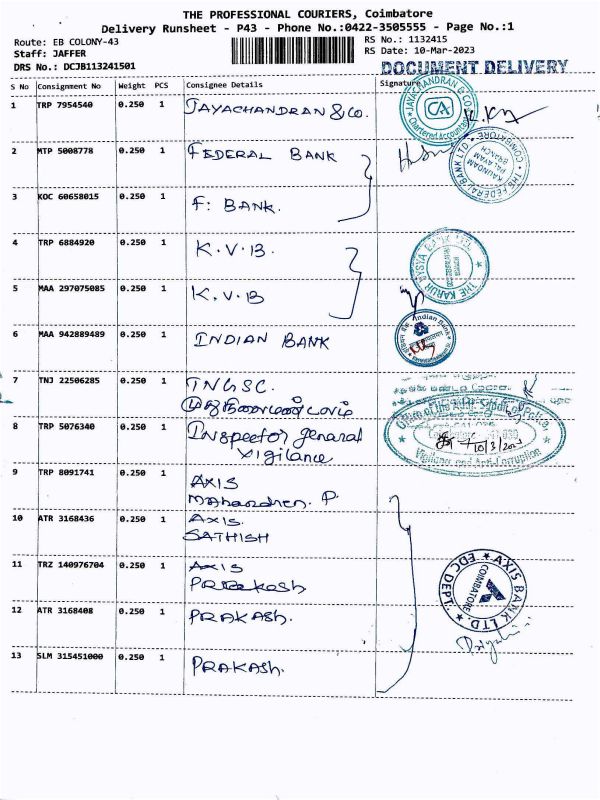 THE PROFESSIONAL COURIERS, Coimbatore
Delivery Runsheet - P43 - Phone No.:0422-3505555 - Page No.:1
Route: EB COLONY-43
RS No.: 1132415
Staff: JAFFER
RS Date: 10-Mar-2023
DRS No.: DCJB113241501
DOCUMENT DELIVERY
S No Consignment No Weight PCS Consignee Details Signature
1 TRP 7954540 0.250 1 JAYACHANDRAN & CO.
JAYACHANDRAN & CO. CA Chartered Accountants
2 MTP 5008778 0.250 1 FEDERAL BANK
THE FEDERAL BANK LTD. KAUNDAM PALAYAM BRANCH COIMBATORE
3 KOC 60658015 0.250 1 F: BANK.
4 TRP 6884920 0.250 1 K.V.B.
THE KARUR VYSYA BANK LTD.
5 MAA 297075085 0.250 1 K.V.B
6 MAA 942889489 0.250 1 INDIAN BANK
Indian Bank
7 TNJ 22506285 0.250 1 TNGSC.
8 TRP 5076340 0.250 1 Inspector genaral
vigilance
10/3/2023
Vigilance and Anti-Corruption
9 TRP 8091741 0.250 1 AXIS
Mahandren. P.
10 ATR 3168436 0.250 1 AXIS.
SATHISH
11 TRZ 140976704 0.250 1 AXIS
Prakash
AXIS BANK LTD. EDC DEPT. COIMBATORE
12 ATR 3168408 0.250 1 PRAKASh.
13 SLM 315451000 0.250 1 PRAKASh.